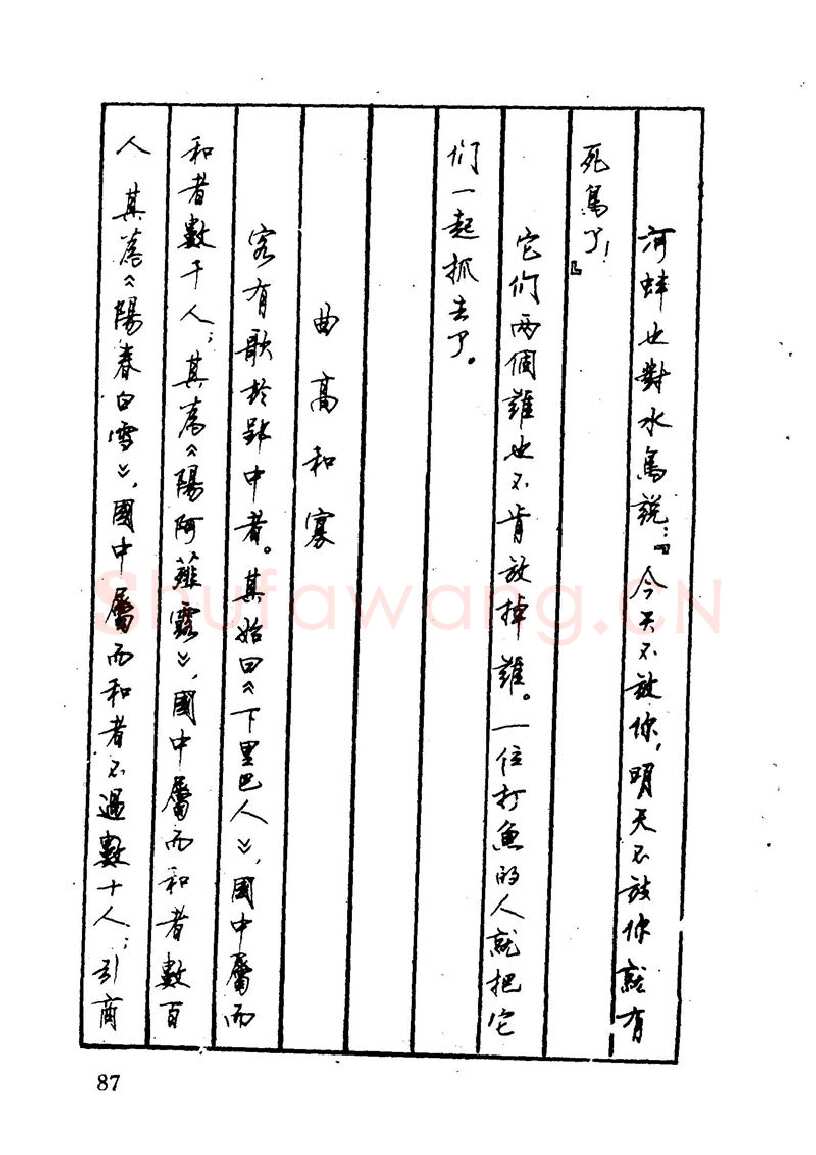 河蚌也對水鳥説：『今天不放你，明天不放你就有
死鳥了！』
它们兩個誰也不肯放掉誰。一位打魚的人就把它
们一起抓去了。
曲高和寡
客有歌於郢中者。其始曰《下里巴人》，國中屬而
和者數千人；其為《陽阿薤露》，國中屬而和者數百
人；其為《陽春白雪》，國中屬而和者不過數十人；引商
87
Shufawang.CN